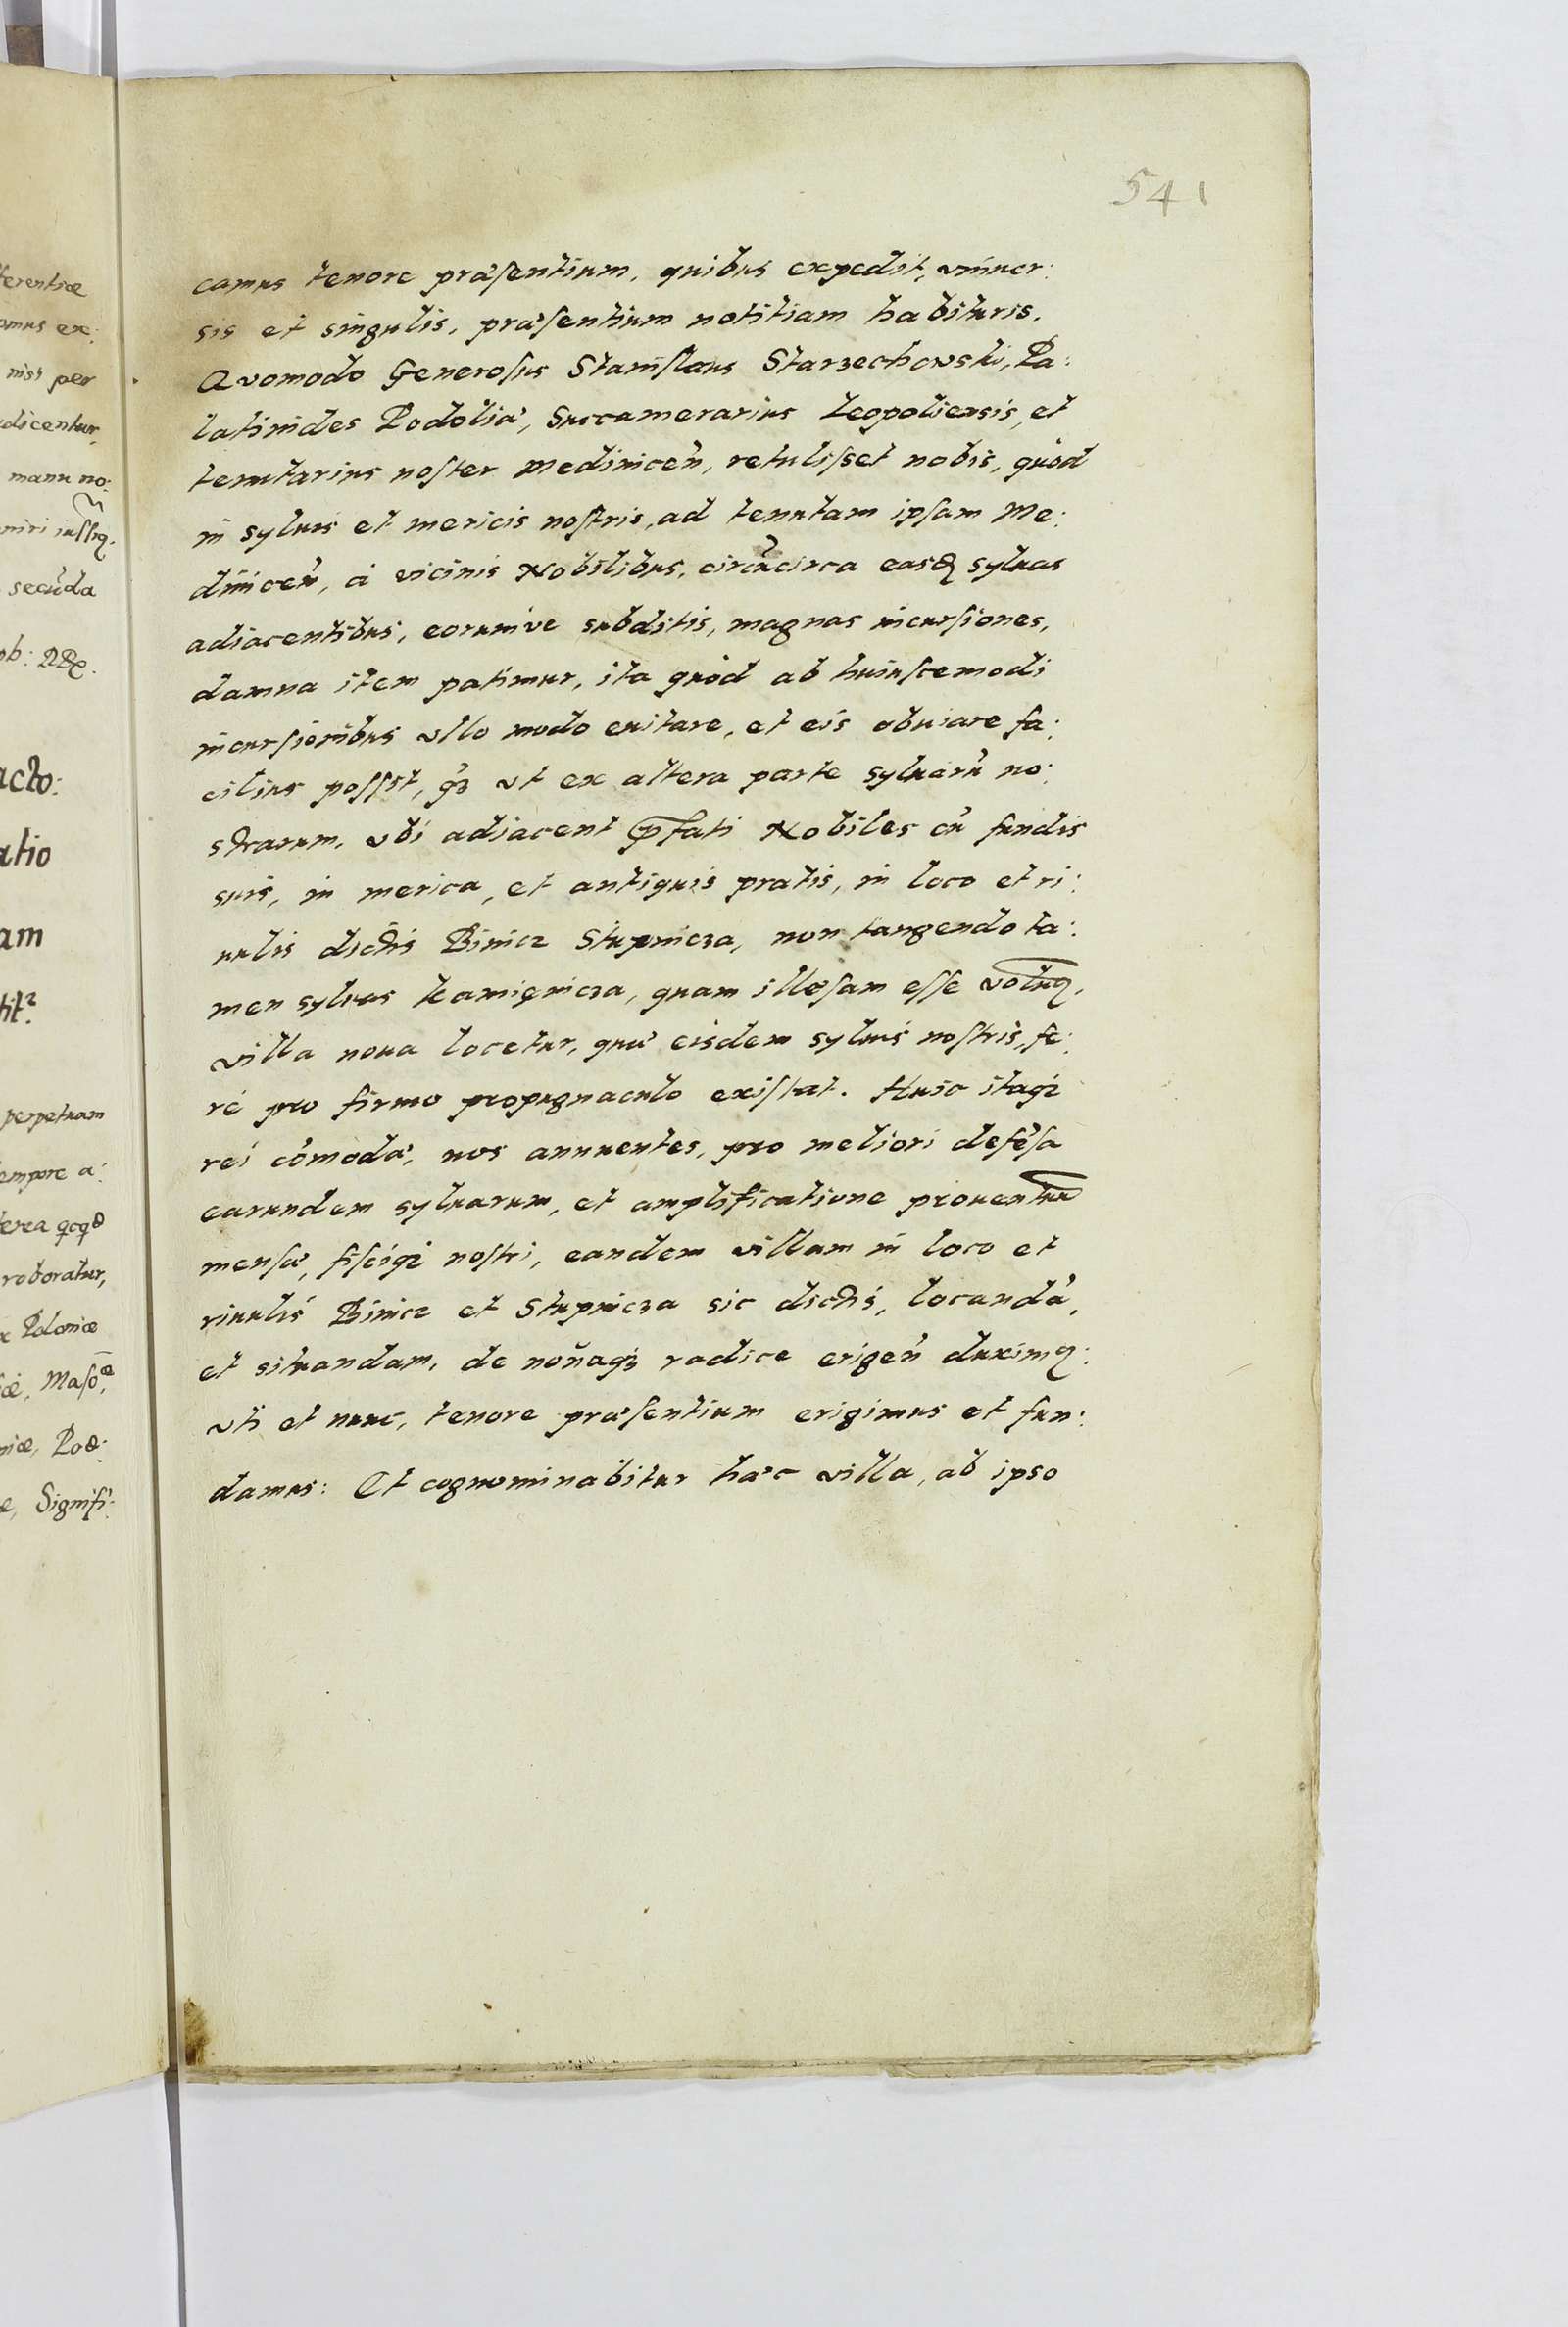 541
camus tenore præsentium, quibus expedit, vniuer:
sis et singulis, præsentium notitiam habituris.
Quomodo Generosus Stanislaus Starzechowski, Pa:
latinides Podoliæ, Succamerarius Leopoliensis, et
tenutarius noster Mediniceñ, retulisset nobis, quòd
in syluis et mericis nostris, ad tenutam ipsam Me:
diniceñ, à vicinis Nobilibus, circũcirca easdẽ syluas
adiacentibus, eorumve subditis, magnas incursiones,
damna item patimur, ita quòd ab huiuscemodi
incursionibus vllo modo euitare, et eis obuiare fa:
cilius possit, qꝫ vt ex altera parte syluarũ no:
strarum, vbi adiacent p̃fati Nobiles cũ fundis
suis, in merica, et antiquis pratis, in loco et ri:
uulis dictis Binicz Stupnicza, non tangendo ta:
men syluas Kamięnicza, quam illæsam esse volum9,
villa noua locetur, quæ eisdem syluis nostris, fe:
rè pro firmo propugnaculo existat. Huic itaqꝫ
rei cõmodæ, nos annuentes, pro meliori defẽsa
earundem syluarum, et amplificatione prouentuũ
mensæ, fisciqꝫ nostri, eandem villam in loco et
riuulis Binicz et Stupnicza sic dictis, locandã,
et situandam, de nouaqꝫ radice erigeñ duxim9:
vti et nunc, tenore præsentium erigimus et fun:
damus: Et cognominabitur hæc villa, ab ipso